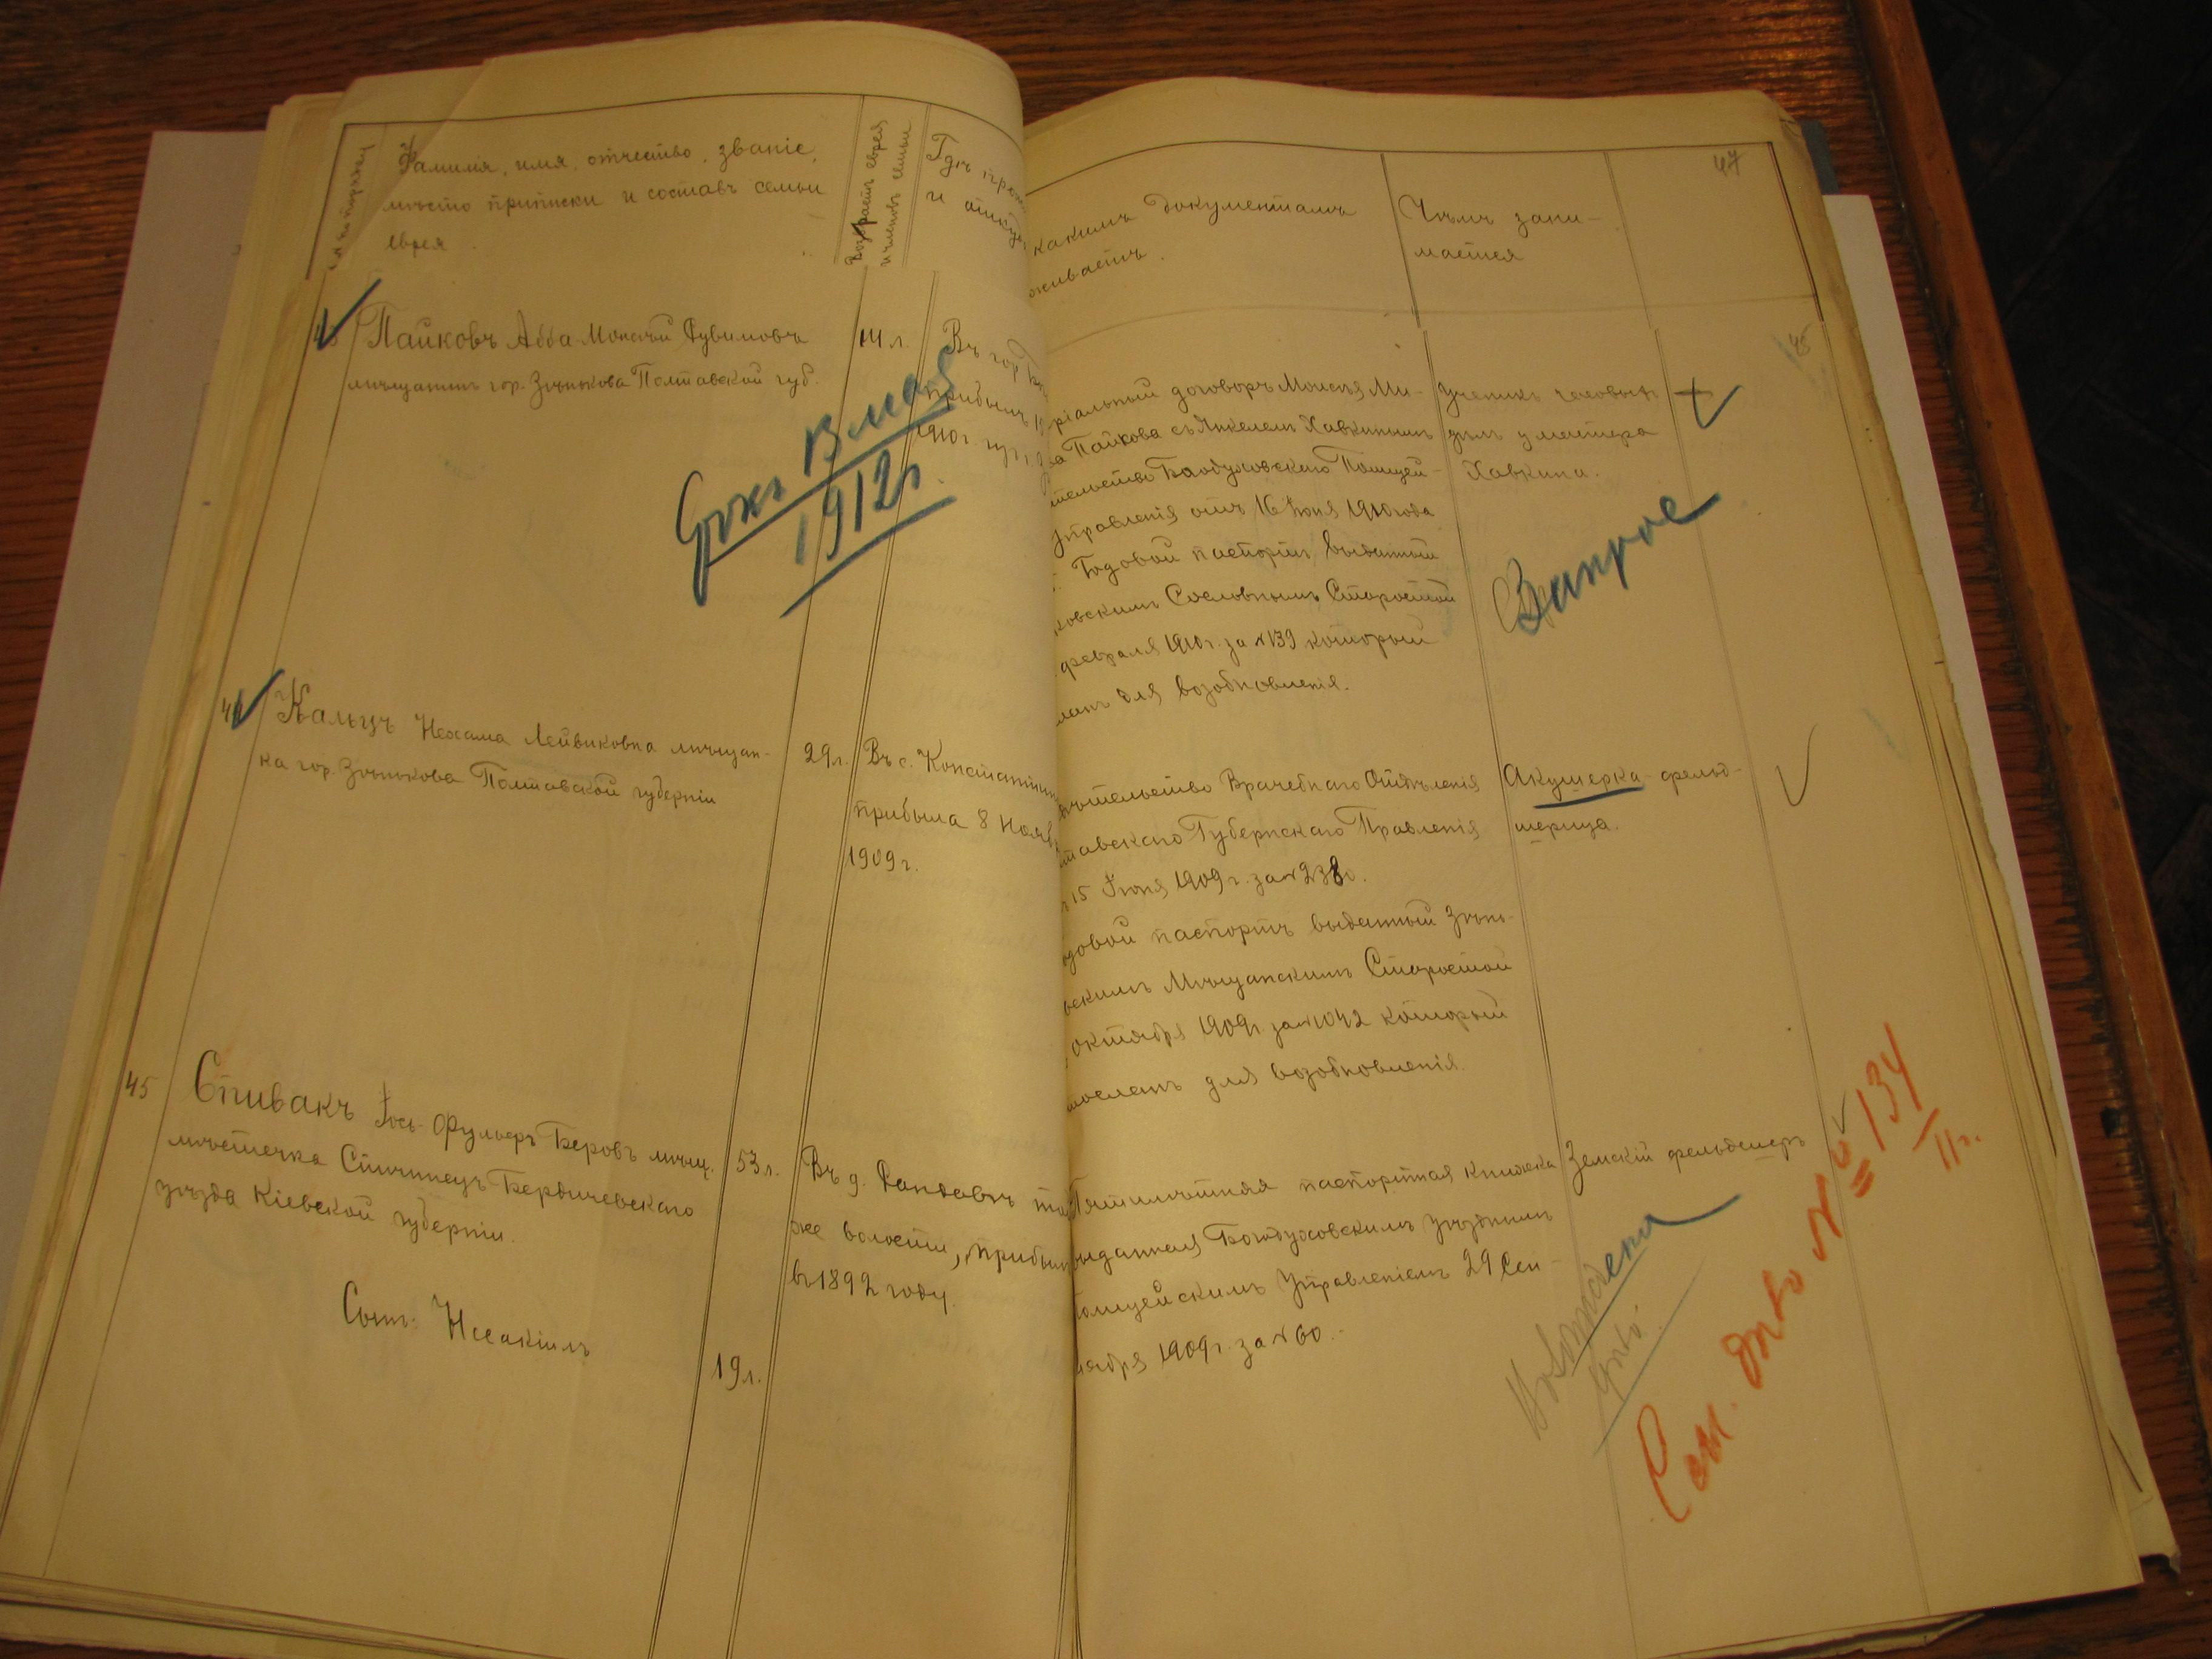 № по порядку
Фамилія, имя, отчество, званіе,
мѣсто приписки и составъ семьи
еврея.
Возрастъ еврея
и членовъ семьи
Гдѣ
и
какимъ документамъ
живаетъ.
Чѣмъ зани-
мается
47
43
Пайковъ Абба Моисей Рувимовъ
мѣщанинъ гор. Зѣнькова Полтавской губ.
14 л.
Въ гор.
прибылъ
1910 г.
Срокъ 13 мая
1912 г.
ріальный договоръ Моисея Ми-
Пайкова съ Янкелемъ Хавкинымъ
тельство Богодуховскаго Полицей-
управленія отъ 16 Іюня 1910 года
Годовой паспортъ выданный
ковскимъ Сословнымъ Старостой
февраля 1910 г. за № 139 который
ланъ для возобновленія.
Ученикъ часовыхъ
дѣлъ у мастера
Хавкина.
Запрос
44
Кальцъ Нехама Лейвиковна мѣщан-
ка гор. Зѣнькова Полтавской губерніи
29 л.
Въ с. Константин
прибыла 8 Нояб
1909 г.
ѣтельство Врачебнаго Отдѣленія
тавскаго Губернскаго Правленія
15 Іюня 1909 г. за № 2380.
довой паспортъ выданный Зѣнь-
вскимъ Мѣщанскимъ Старостой
октября 1909 г. за № 1042 который
посланъ для возобновленія.
Акушерка-фельд-
шерица.
45
Спивакъ Іось-Фульфъ Беровъ мѣщ.
мѣстечка Спичинецъ Бердичевскаго
уѣзда Кіевской губерніи.
53 л.
Въ д.
же волости, прибыл
въ 1892 году.
Пятилѣтняя паспортная книжка
выданная Богодуховскимъ уѣзднымъ
Полицейскимъ Управленіемъ 29 Сен-
тября 1909 г. за № 60.-
Земскій фельдшеръ
Сынъ:
19 л.
дѣло
См. дѣло № 134
11 г.